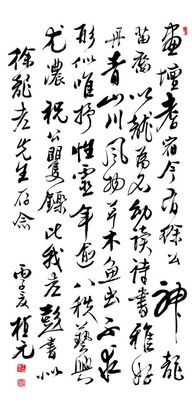 畫壇耆宿今有徐公神龍
苗裔以龍為名幼讀詩書雅好
丹青山川風物草木魚蟲不求
形似唯抒性靈年逾八秩藝興
尤濃祝公矍鑠比我老彭書以
徐龍先生存念
亥柏元